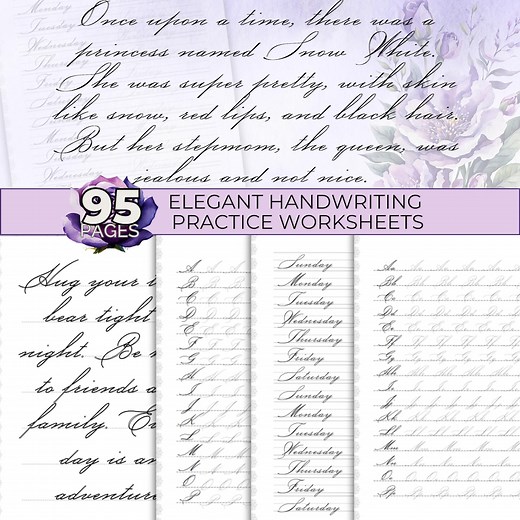 Once upon a time, there was a
princess named Snow White.
She was super pretty, with skin
like snow, red lips, and black hair.
But her stepmom, the queen, was
jealous and not nice.
95
PAGES
ELEGANT HANDWRITING
PRACTICE WORKSHEETS
Hug your t
bear tight
night. Be
to friends a
family. E
day is an
adventure
A
B
C
D
E
F
G
H
I
J
K
L
M
N
O
P
Sunday
Monday
Tuesday
Wednesday
Thursday
Friday
Saturday
Sunday
Monday
Tuesday
Wednesday
Thursday
Friday
Saturday
Aa
Bb
Cc
Dd
Ee
Ff
Gg
Hh
Ii
Jj
Kk
Ll
Mm
Nn
Oo
Pp